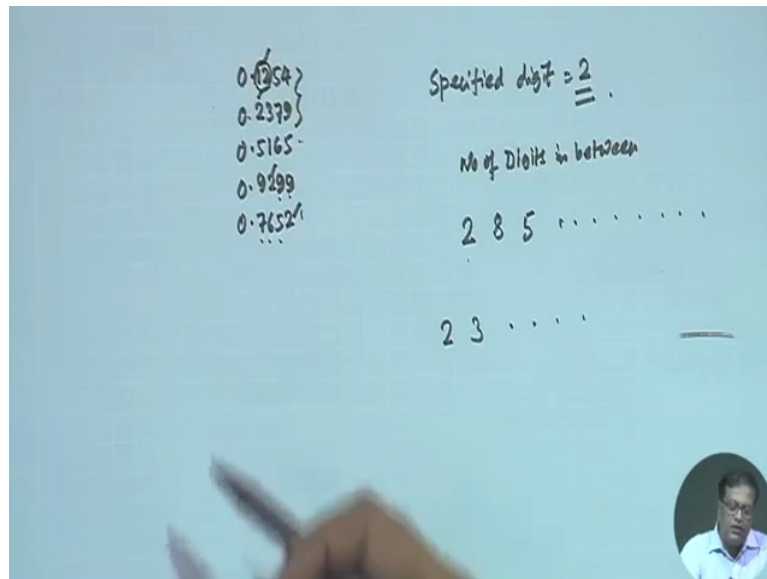 0.1254
0.2379
0.5165
0.9299
0.7652
Specified digit = 2
No of Digits in between
2 8 5 . . . . . . . .
2 3 . . . .